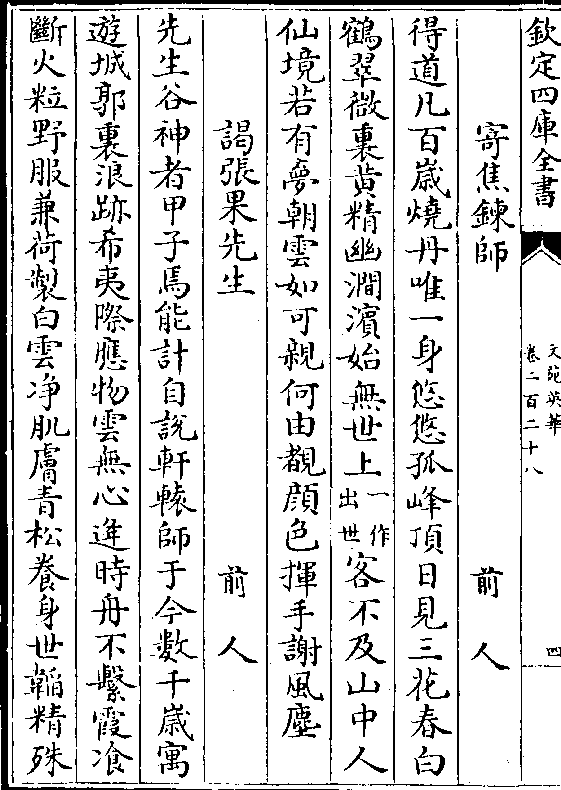 欽定四庫全書
文苑英華
卷二百二十八
四
寄焦鍊師
前人
得道凡百歲燒丹唯一身悠悠孤峰頂日見三花春白
鶴翠微裏黃精幽澗濱始無世上一作出世客不及山中人
仙境若有夢朝雲如可親何由覩顔色揮手謝風塵
謁張果先生
前人
先生谷神者甲子焉能計自說軒轅師于今數千歲寓
遊城郭裏浪跡希夷際應物雲無心逢時舟不繫霞飡
斷火粒野服兼荷製白雲净肌膚青松養身世韜精殊